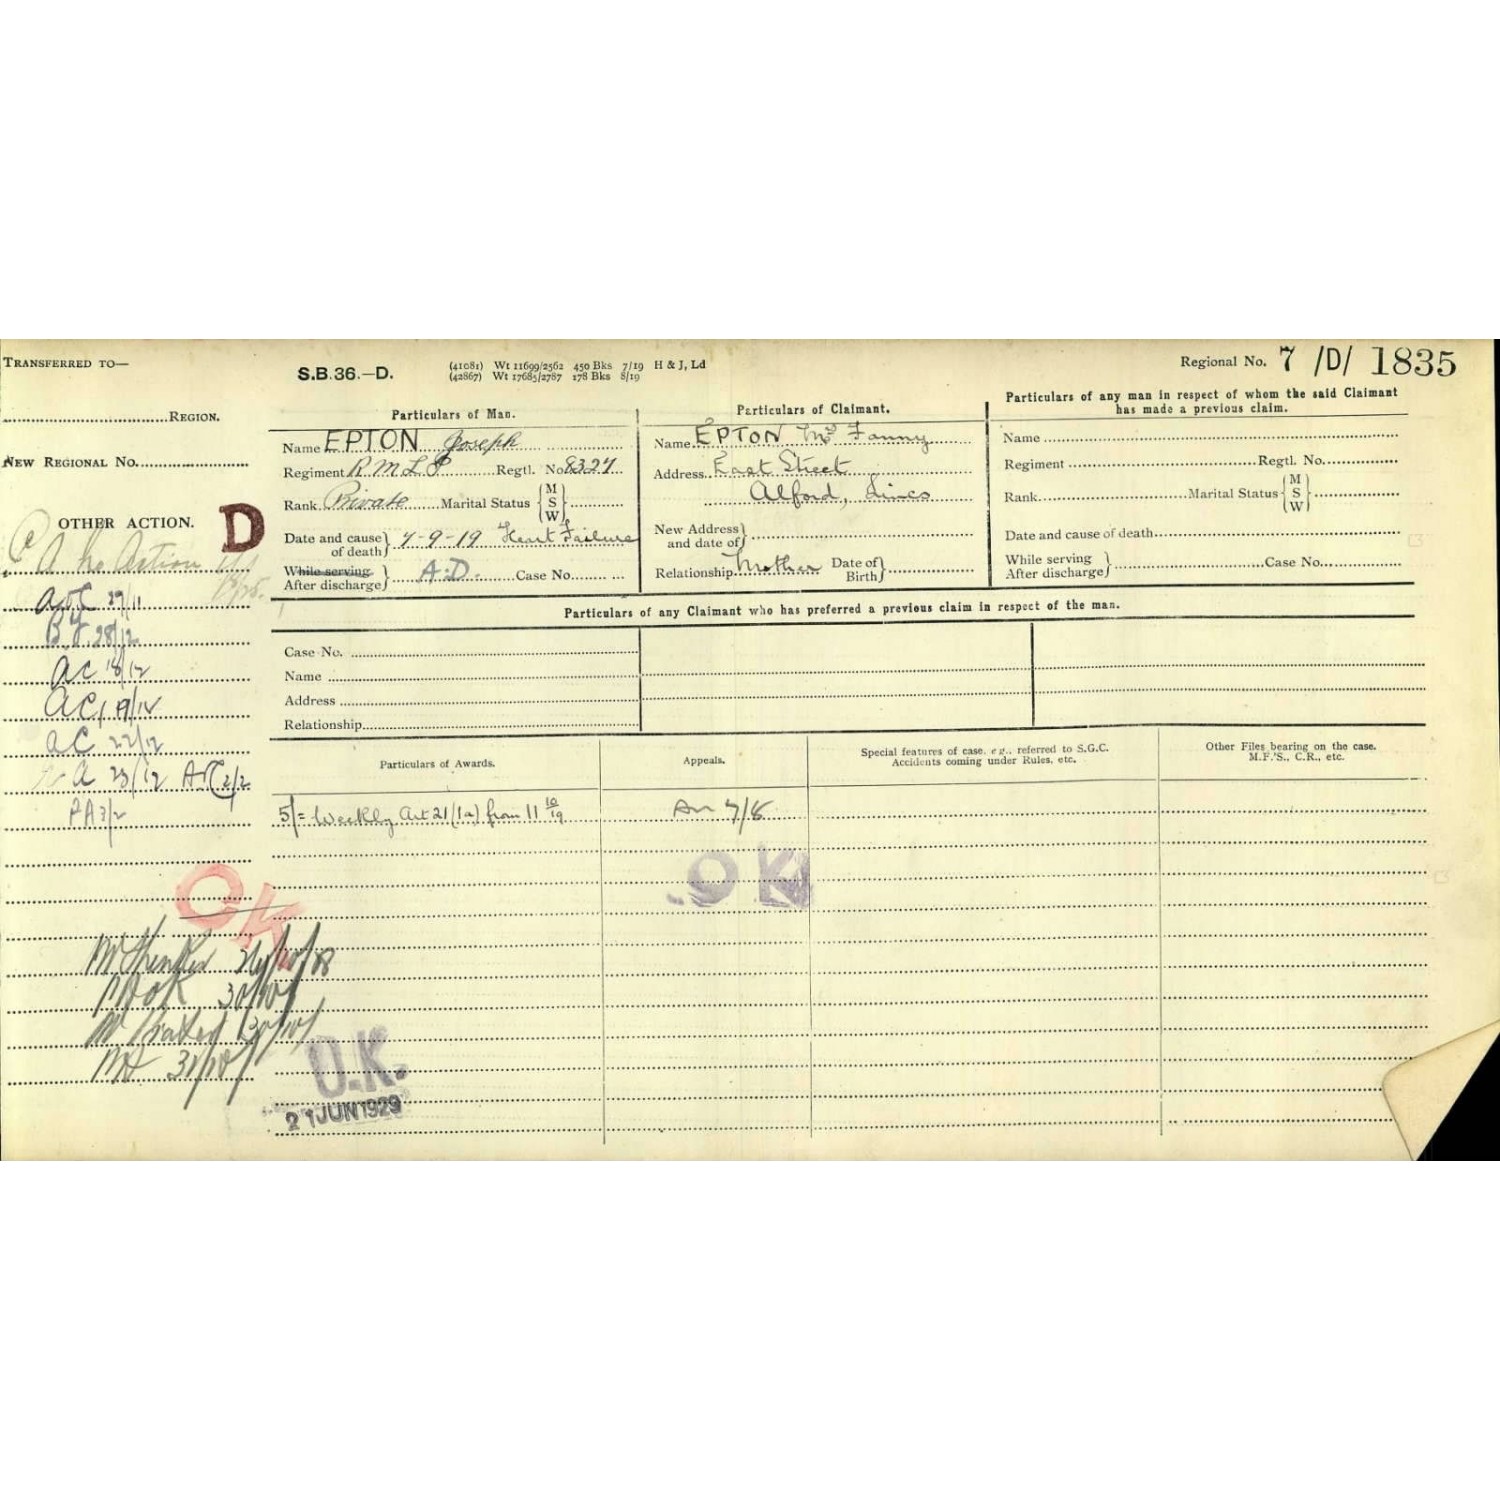 TRANSFERRED TO—
REGION.
NEW REGIONAL NO.
OTHER ACTION.
D
A No Action
29/11
28/12
AC 18/12
AC 19/12
AC 22/12
A 23/12 2/2
PA 3/2
OK
30/10
31/10
S.B.36.—D.
(41081) Wt 11699/2562 450 Bks 7/19 H & J, Ld
(42867) Wt 17685/2787 178 Bks 8/19
Regional No. 7 /D/ 1835
Particulars of Man.
Name EPTON Joseph
Regiment R M L I Regtl. No. 8327
Rank Private Marital Status {M S W}
Date and cause of death} 7-9-19 Heart Failure
While serving
After discharge} A.D. Case No.
Particulars of Claimant.
Name EPTON Mrs Fanny
Address East Street
Alford, Lincs
New Address and date of}
Relationship Mother Date of Birth}
Particulars of any man in respect of whom the said Claimant
has made a previous claim.
Name
Regiment Regtl. No.
Rank Marital Status {M S W}
Date and cause of death
While serving
After discharge} Case No.
Particulars of any Claimant who has preferred a previous claim in respect of the man.
Case No.
Name
Address
Relationship
Particulars of Awards.
5/= Weekly Art 21(1a) from 11 10/19
Appeals.
7/8
OK
Special features of case. e.g., referred to S.G.C.
Accidents coming under Rules, etc.
Other Files bearing on the case.
M.F.'S., C.R., etc.
O.K.
21 JUN 1929